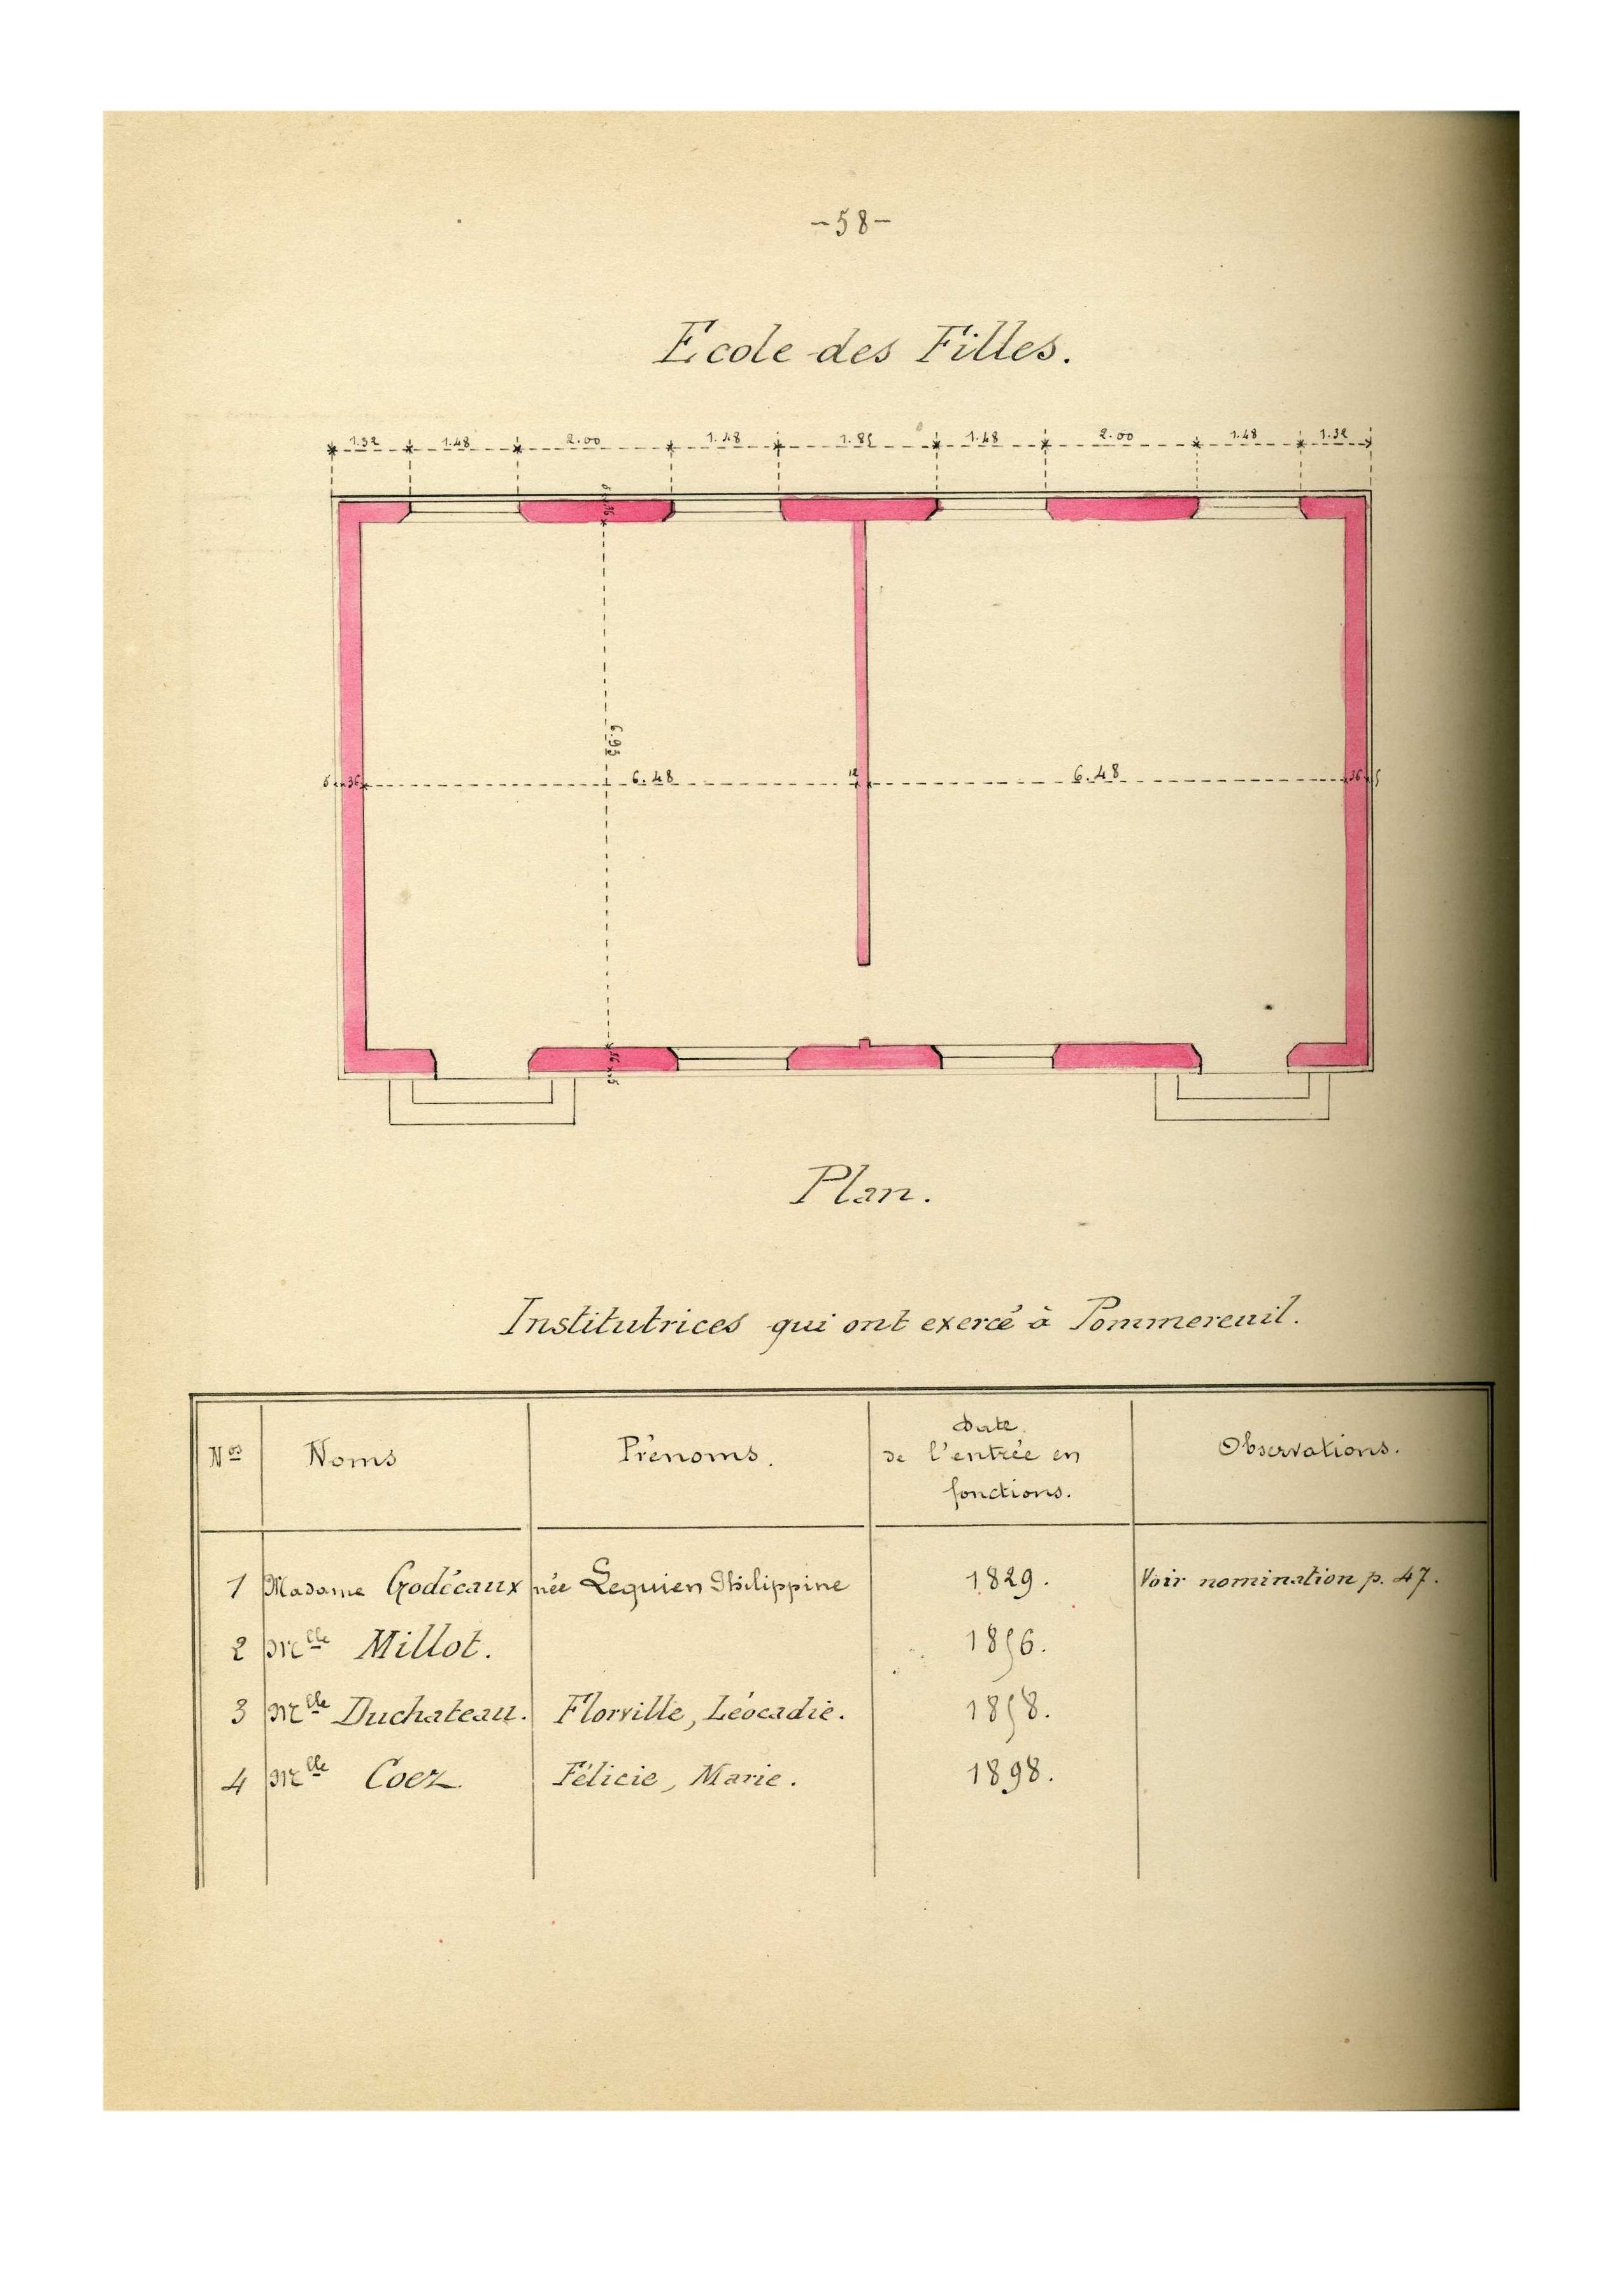 -58-
Ecole des Filles.
1.32 1.48 2.00 1.48 1.85 1.48 2.00 1.48 1.32
5 36
6.95
5 36 6.48 12 6.48 36 5
36 5
Plan.
Institutrices qui ont exercé à Pommereuil.
Nos Noms Prénoms. Date de l'entrée en fonctions. Observations.
1 Madame Godécaux née Lequien Philippine 1829. Voir nomination p. 47.
2 Melle Millot. 1856.
3 Melle Duchateau. Florville, Léocadie. 1858.
4 Melle Coez Félicie, Marie. 1898.